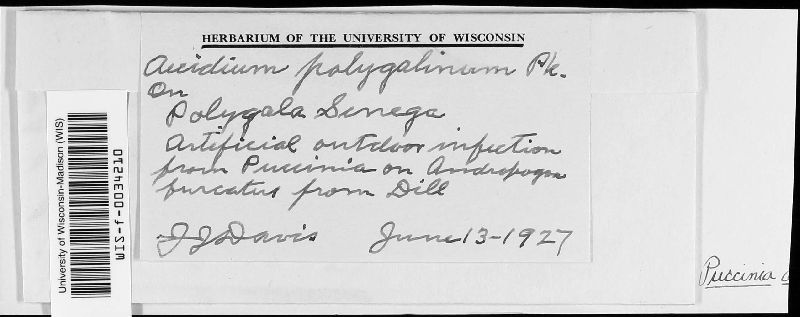 HERBARIUM OF THE UNIVERSITY OF WISCONSIN
Aecidium polygalinum Pk.
On
Polygala Senega
Artificial outdoor infection
from Puccinia on Andropogon
furcatus from Dill
J J Davis June 13-1927
University of Wisconsin-Madison (WIS)
WIS-f-0034210
Puccinia